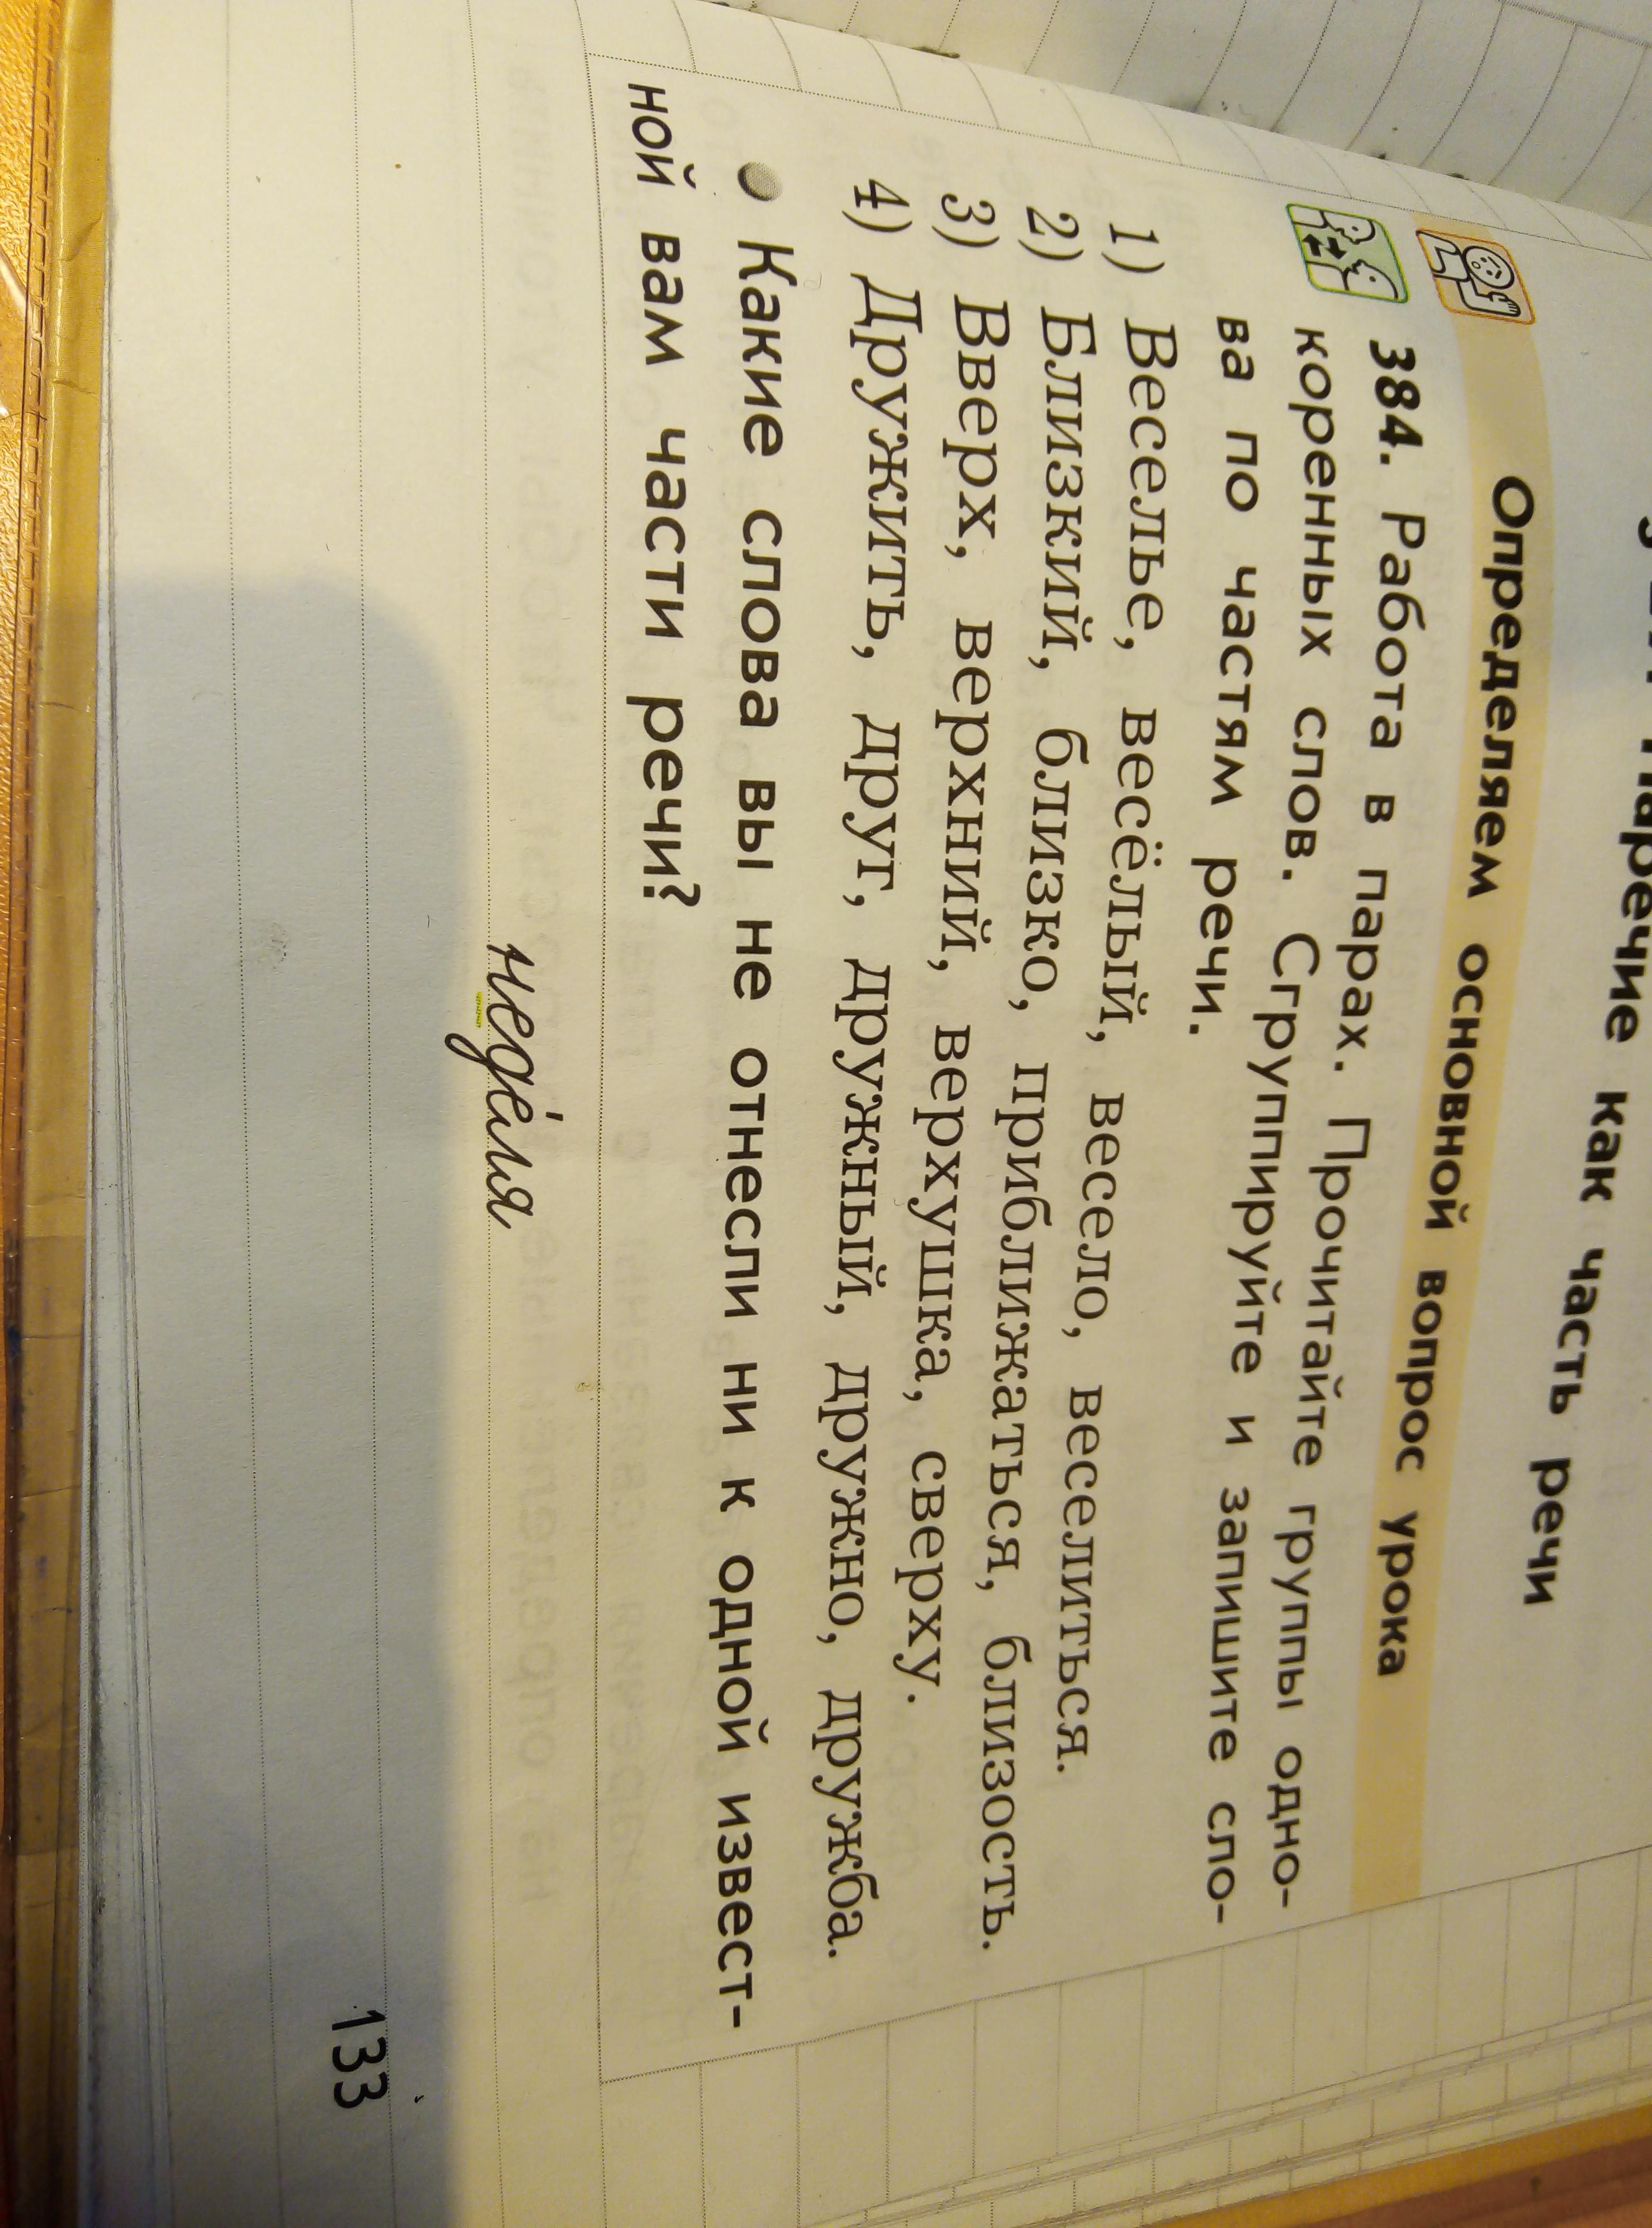 Наречие как часть речи
Определяем основной вопрос урока
384. Работа в парах. Прочитайте группы одно-
коренных слов. Сгруппируйте и запишите сло-
ва по частям речи.
1) Веселье, весёлый, весело, веселиться.
2) Близкий, близко, приближаться, близость.
3) Вверх, верхний, верхушка, сверху.
4) Дружить, друг, дружный, дружно, дружба.
Какие слова вы не отнесли ни к одной извест-
ной вам части речи?
неде́ля
133